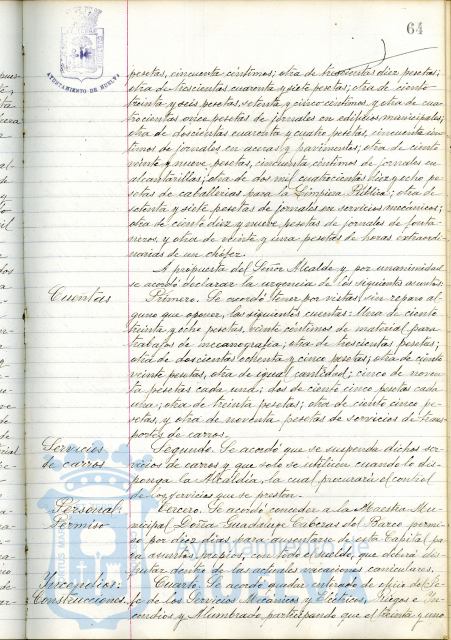 64
AYUNTAMIENTO DE HUELVA
pesetas, cincuenta céntimos; otra de trescientas diez pesetas;
otra de trescientas cuarenta y siete pesetas; otra de ciento
treinta y seis pesetas, setenta y cinco céntimos, y otra de cua-
trocientas once pesetas de jornales en edificios municipales;
otra de doscientas cuarenta y cuatro pesetas, cincuenta cén-
timos de jornales en aceras y pavimentos; otra de ciento
veinte y nueve pesetas, cincuenta céntimos de jornales en
alcantarillas; otra de dos mil cuatrocientas diez y ocho pe-
setas de caballerías para la Limpieza Pública; otra de
setenta y siete pesetas de jornales en servicios mecánicos;
otra de ciento diez y nueve pesetas de jornales de fonta-
neros, y otra de veinte y una pesetas de horas extraordi-
narias de un chófer.
A propuesta del Señor Alcalde y por unanimidad
se acordó declarar la urgencia de los siguientes asuntos:
Cuentas
Primero. Se acordó tener por vistas, sin reparo al-
guno que oponer, las siguientes cuentas: Una de ciento
treinta y ocho pesetas, veinte céntimos de material para
trabajos de mecanografía; otra de trescientas pesetas;
otra de doscientas ochenta y cinco pesetas; otra de ciento
veinte pesetas, otra de igual cantidad; cinco de noven-
ta pesetas cada una; dos de ciento cinco pesetas cada
una; otra de treinta pesetas; otra de ciento cinco pe-
setas, y otra de noventa pesetas de servicios de trans-
portes de carros.
Servicios
de carros
Segundo. Se acordó que se suspenda dichos ser-
vicios de carros y que solo se utilicen cuando lo dis-
ponga la Alcaldía, la cual procurará el control
de los servicios que se presten.
Personal:
Permiso
Tercero. Se acordó conceder a la Maestra Mu-
nicipal Doña Guadalupe Cabezas del Barco permi-
so por diez días para ausentarse de esta Capital pa-
ra asuntos propios, con todo el sueldo, que deberá dis-
frutar dentro de las actuales vacaciones caniculares.
Incendios:
Construcciones.
Cuarto. Se acordó quedar enterado de oficio del Je-
fe de los Servicios Mecánicos y Eléctricos, Riegos e In-
cendios y Alumbrado, participando que el treinta y uno